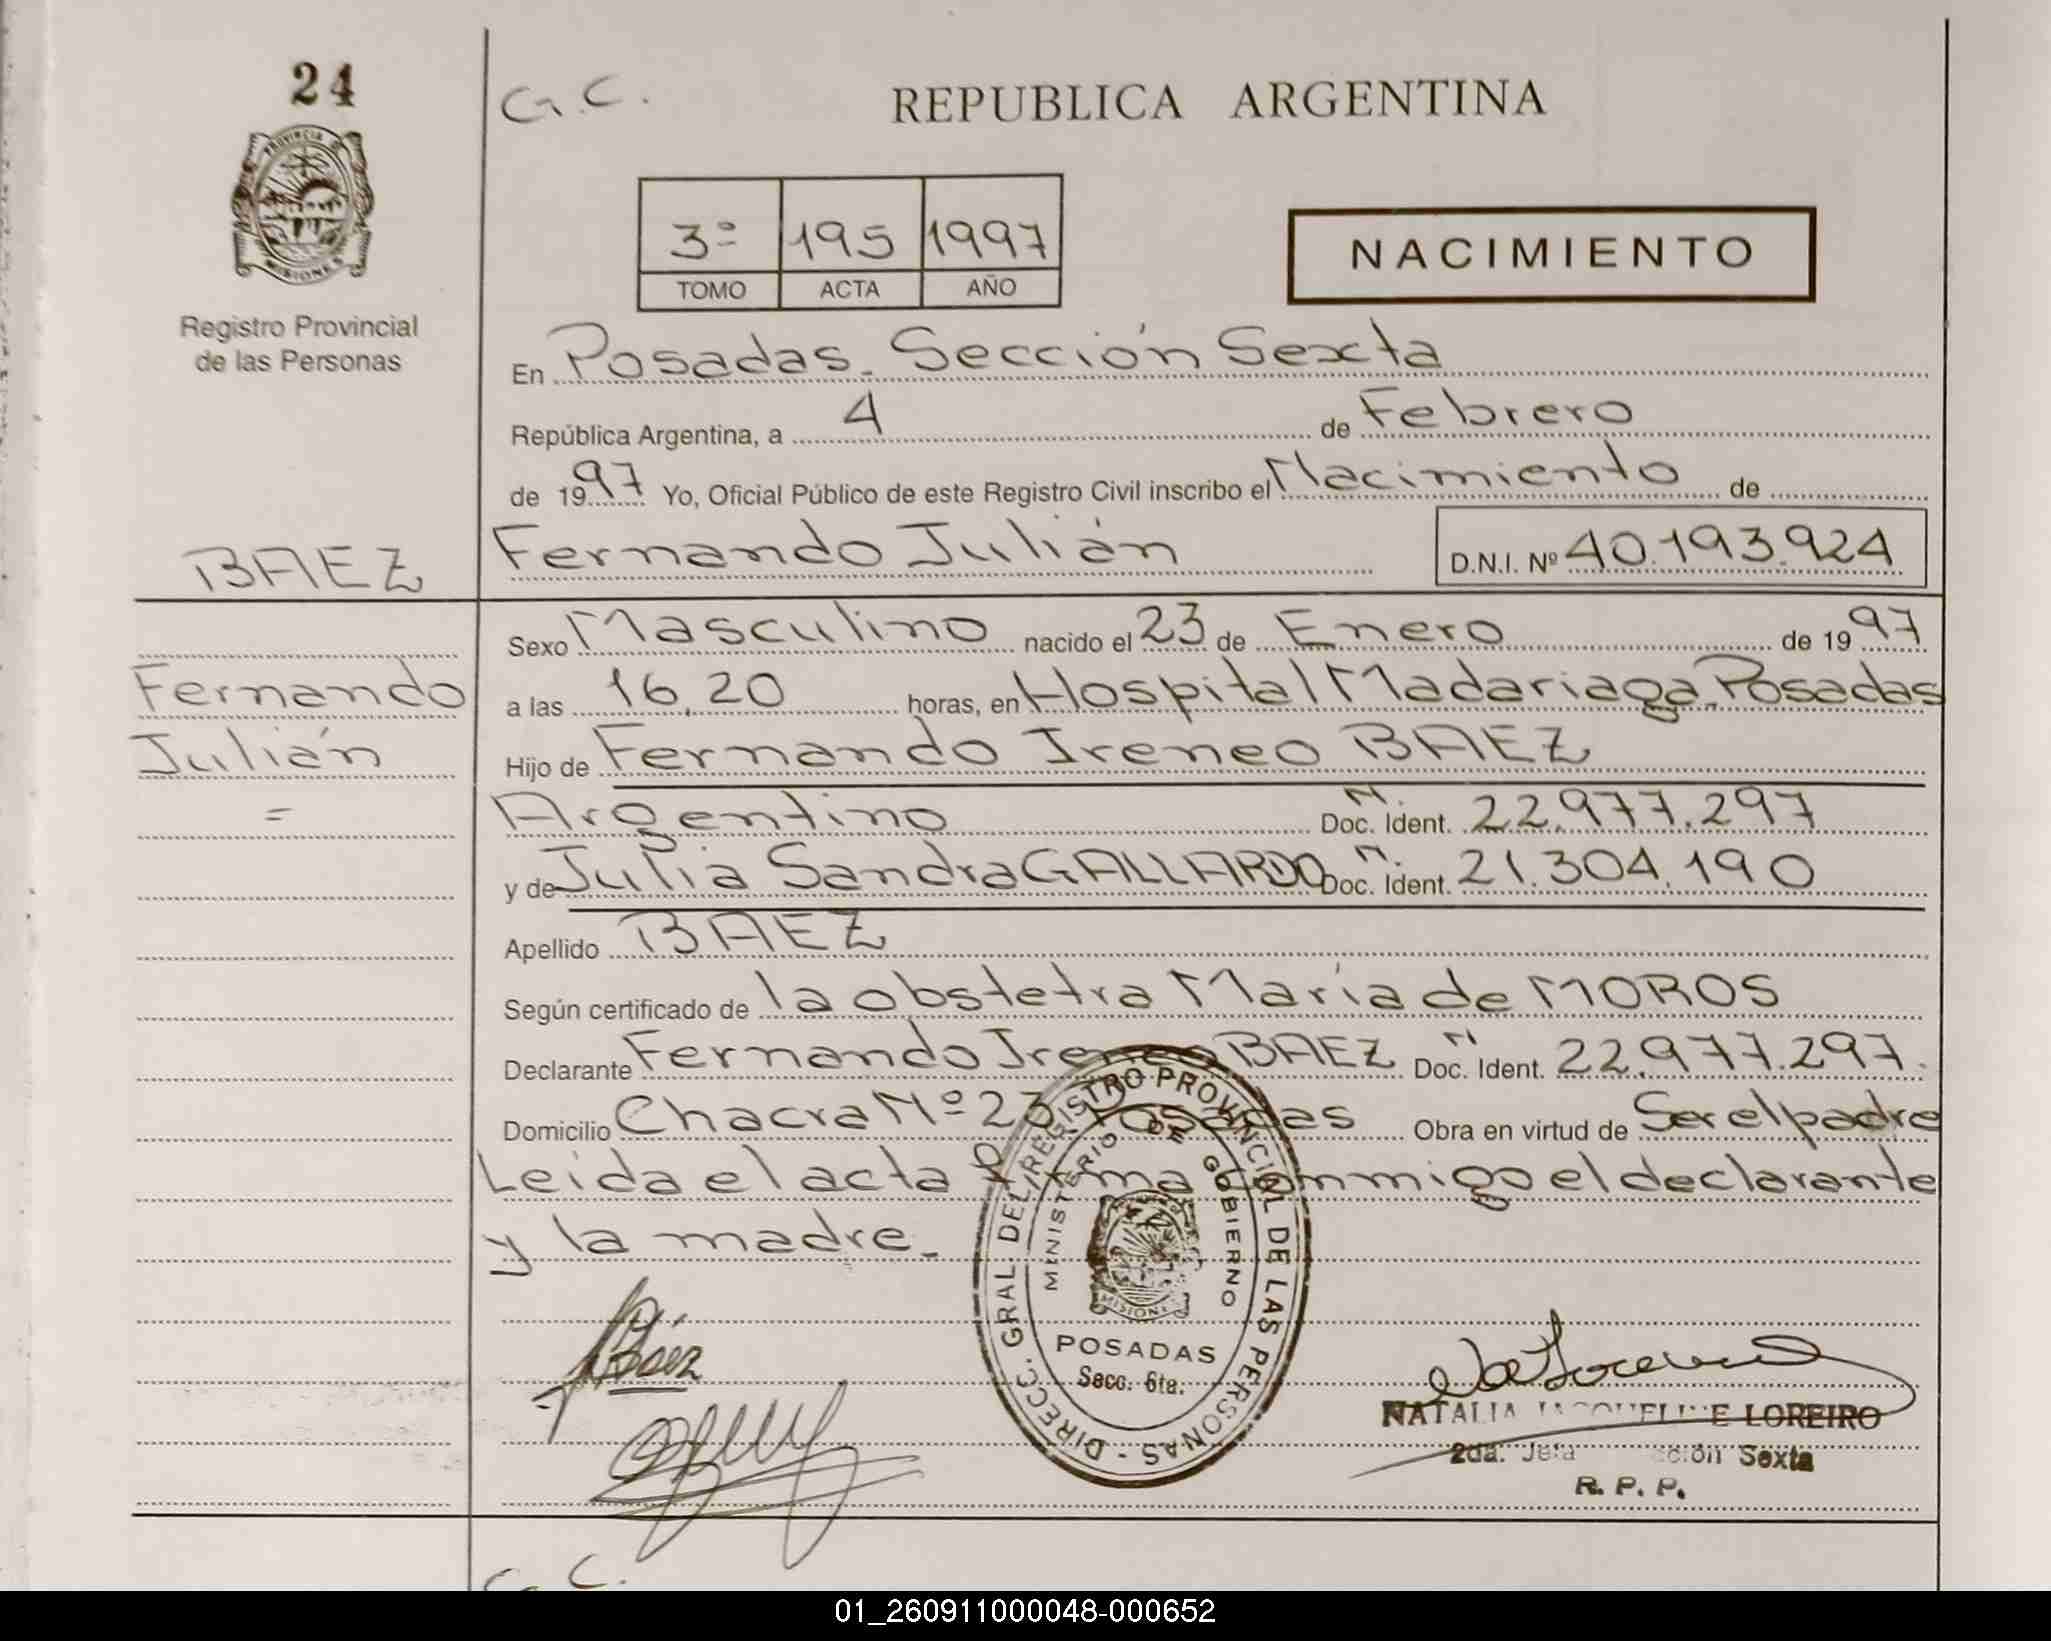 24
G.C.
REPUBLICA ARGENTINA
PROVINCIA D
MISIONES
Registro Provincial
de las Personas
3º 195 1997
TOMO ACTA AÑO
NACIMIENTO
En Posadas. Sección Sexta
República Argentina, a 4 de Febrero
de 1997 Yo, Oficial Público de este Registro Civil inscribo el Nacimiento de
BAEZ Fernando Julián D.N.I. Nº 40.193.924
Sexo Masculino nacido el 23 de Enero de 1997
Fernando a las 16,20 horas, en Hospital Madariaga. Posadas
Julián Hijo de Fernando Ireneo BAEZ
= Argentino Doc. N. Ident. 22.977.297
y de Julia Sandra GALLARDO Doc. N. Ident. 21.304.190
Apellido BAEZ
Según certificado de la obstetra María de MOROS
Declarante Fernando Ireneo BAEZ Doc. N Ident. 22.977.297.
Domicilio Chacra Nº 23. Posadas Obra en virtud de Ser el padre
Leida el acta firma conmigo el declarante
y la madre.
Báez
DIRECC. GRAL DEL REGISTRO PROVINCIAL DE LAS PERSONAS -
MINISTERIO DE GOBIERNO
MISIONES
POSADAS
Secc. 6ta.
NATALIA JACQUELINE LOREIRO
2da. Jefa Sección Sexta
R. P. P.
G. C.
01_260911000048-000652